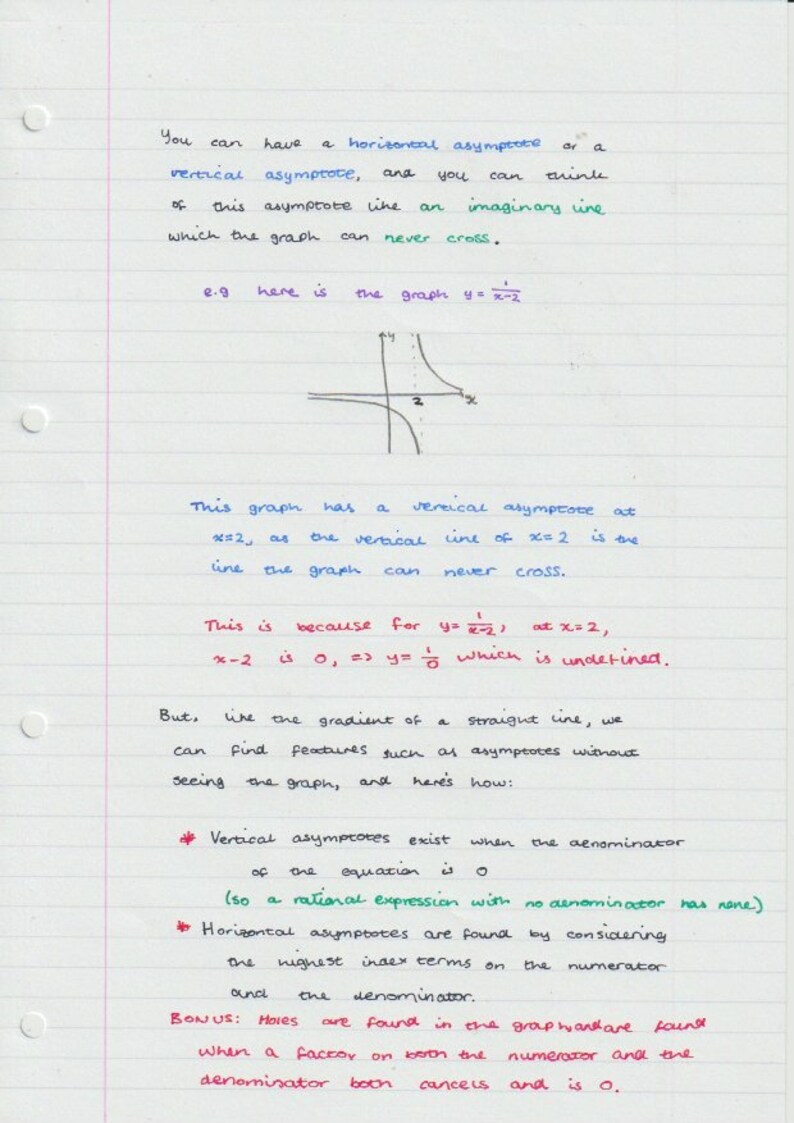 You can have a horizontal asymptote or a
vertical asymptote, and you can think
of this asymptote like an imaginary line
which the graph can never cross.
e.g here is the graph y = 1/x-2
y
2
x
This graph has a vertical asymptote at
x=2, as the vertical line of x=2 is the
line the graph can never cross.
This is because for y= 1/x-2, at x=2,
x-2 is 0, => y= 1/0 which is undefined.
But, like the gradient of a straight line, we
can find features such as asymptotes without
seeing the graph, and here's how:
* Vertical asymptotes exist when the denominator
of the equation is 0
(so a rational expression with no denominator has none)
* Horizontal asymptotes are found by considering
the highest index terms on the numerator
and the denominator.
BONUS: Holes are found in the graph and are found
when a factor on both the numerator and the
denominator both cancels and is 0.